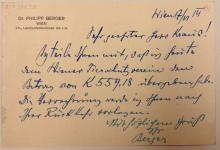 Dr. PHILIPP BERGER
WIEN
Wien
Sehr geehrter Herr Kraus!
Ich teile Ihnen mit, daß ich heute
dem Wiener Tierschutzverein den
Betrag von K 559,18 übergeben habe.
Die Verrechnung werde ich Ihnen nach
Ihrer Rückkehr vorlegen.
Mit herzlichem Gruß
Ihr
Berger